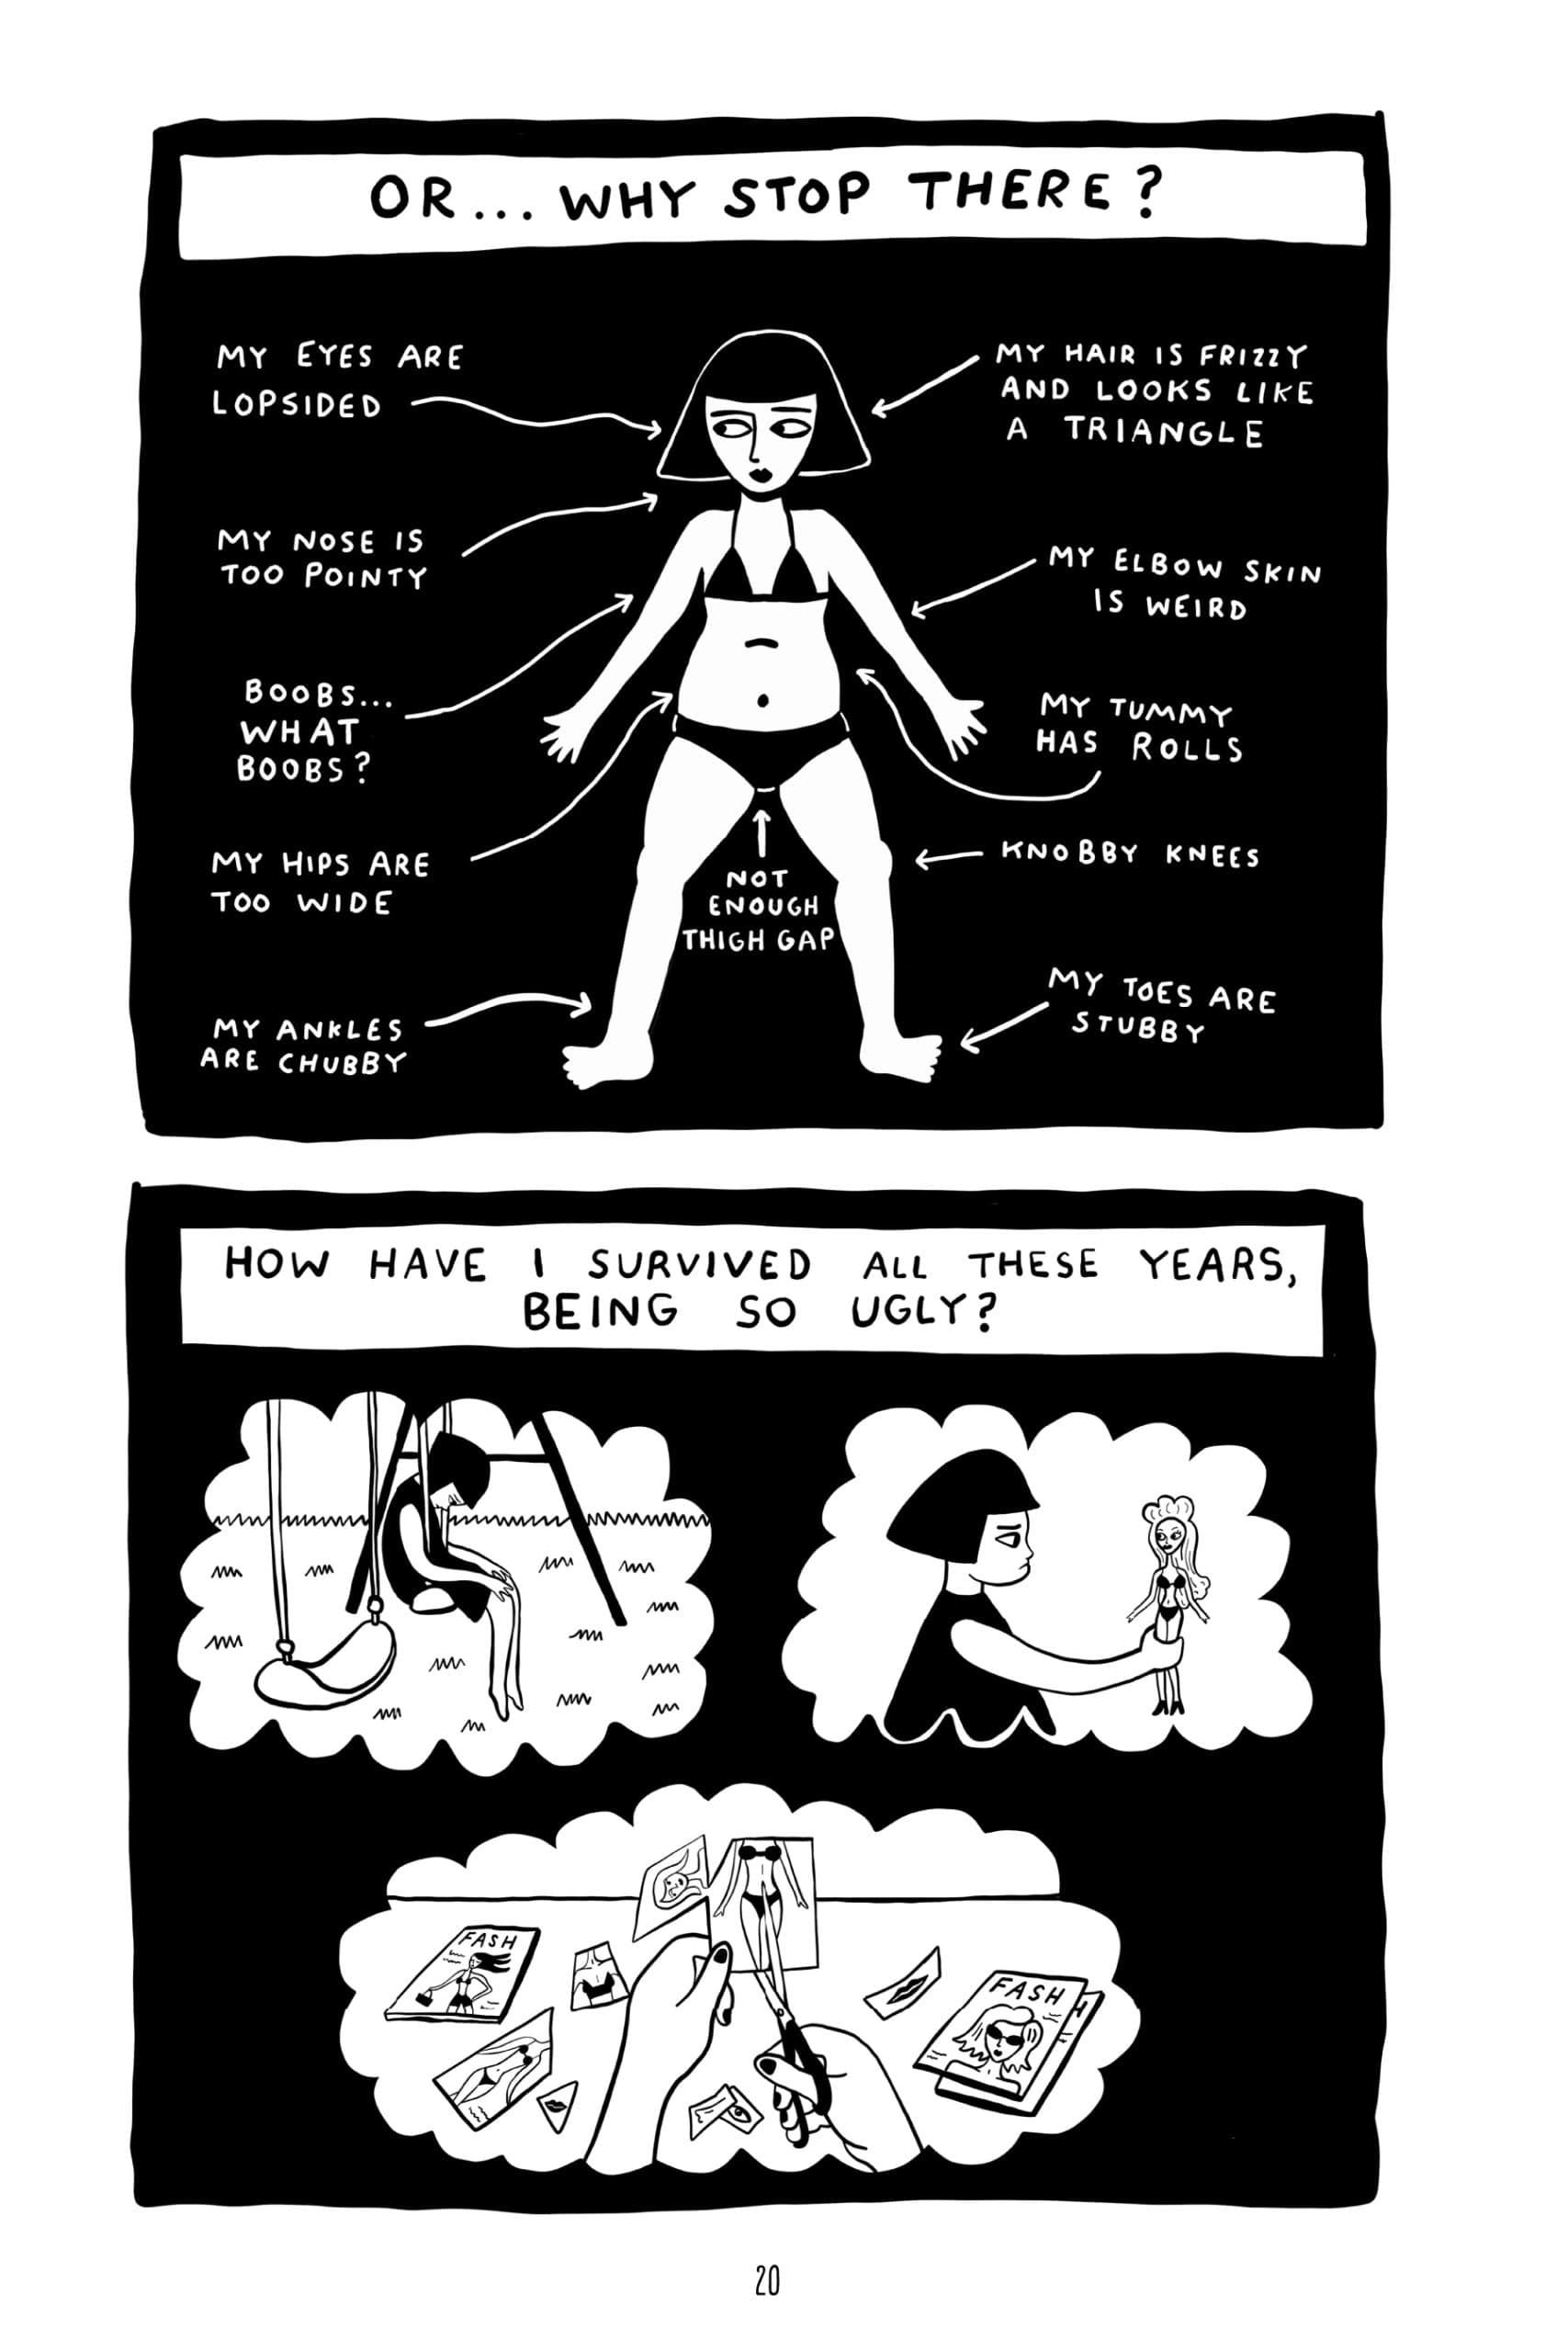 OR... WHY STOP THERE?
MY EYES ARE
LOPSIDED
MY HAIR IS FRIZZY
AND LOOKS LIKE
A TRIANGLE
MY NOSE IS
TOO POINTY
MY ELBOW SKIN
IS WEIRD
BOOBS...
WHAT
BOOBS?
MY TUMMY
HAS ROLLS
MY HIPS ARE
TOO WIDE
NOT
ENOUGH
THIGH GAP
KNOBBY KNEES
MY ANKLES
ARE CHUBBY
MY TOES ARE
STUBBY
HOW HAVE I SURVIVED ALL THESE YEARS,
BEING SO UGLY?
FASH
FASH
H
20